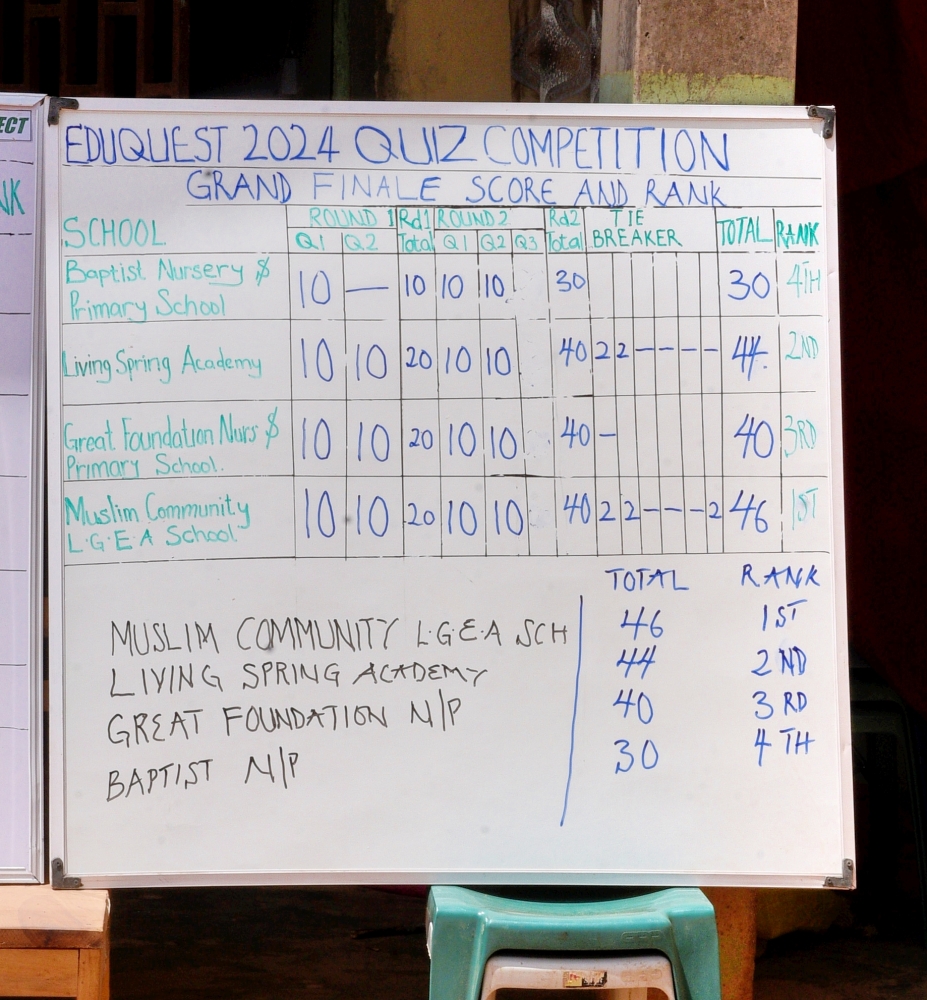 ECT
NK
EDUQUEST 2024 QUIZ COMPETITION
GRAND FINALE SCORE AND RANK
SCHOOL ROUND 1 Rd1 Total ROUND 2 Rd2 Total TIE BREAKER TOTAL RANK
Q1 Q2 Q1 Q2 Q3
Baptist Nursery $
Primary School 10 — 10 10 10 30 30 4TH
Living Spring Academy 10 10 20 10 10 40 2 2 - - - - 44 2ND
Great Foundation Nurs $
Primary School. 10 10 20 10 10 40 - 40 3RD
Muslim Community
L.G.E.A School 10 10 20 10 10 40 2 2 - - - 2 46 1ST
TOTAL RANK
MUSLIM COMMUNITY L.G.E.A SCH 46 1ST
LIVING SPRING ACADEMY 44 2ND
GREAT FOUNDATION N/P 40 3RD
BAPTIST N/P 30 4TH